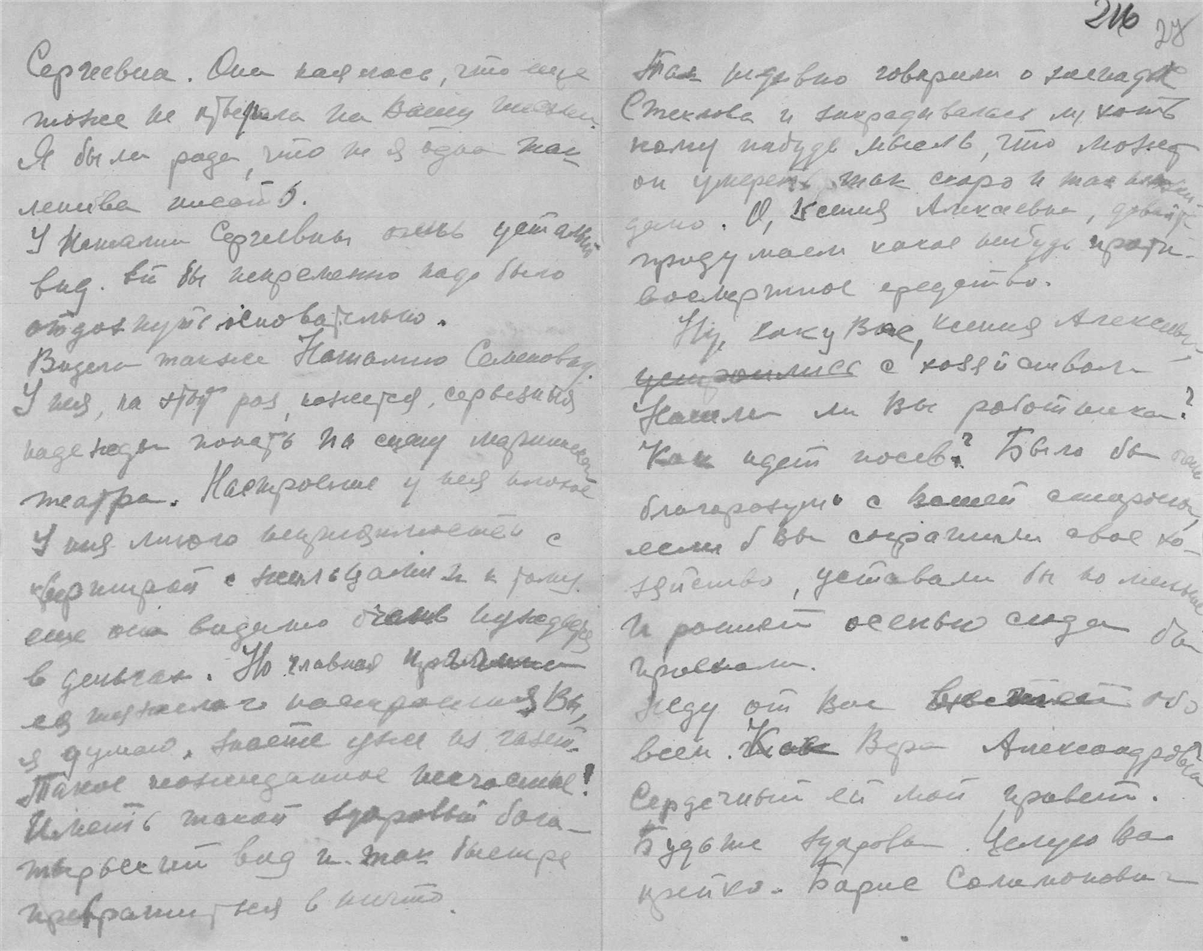 Сергеевна. Она каялась, что еще
тоже не ответила на Вашу
Я была рада, что не я одна так
ленива писать.
У Наталии Сергеевны очень усталый
вид. Ей бы непременно надо было
отдохнуть основательно.
Видела также Наталию Семеновну.
У нея, на этот раз, кажется, серьезныя
надежды попасть на сцену Мариинскаго
театра. Настроение у нея плохое
У нея много неприятностей с
квартирой с жильцами и к тому
еще она видимо очень нуждается
в деньгах. Но главная причина
ея тяжелаго настроения, Вы,
я думаю, знаете уже из газет.
Такое неожиданное несчастье!
Иметь такой здоровый бога-
тырский вид и так быстро
превратиться в ничто.
216 28
Так недавно говорили о
Стеклова и закрадывалась ли хоть
кому нибудь мысль, что может
он умереть так скоро и так неожи-
данно. О, Ксения Алексеевна, давайте
придумаем какое нибудь проти-
восмертное средство.
Ну, как у Вас, Ксения Алексеевна,
устроились с хозяйством
Нашли ли Вы работника?
Как идет посев? Было бы очень
благоразумно с Вашей стороны,
если б Вы сократили свое хо-
зяйство, уставали бы по меньше
и ранней осенью сюда бы
приехали.
Жду от Вас вестей обо
всем. Как Вера Александровна?
Сердечный ей мой привет.
Будьте здоровы. Целую Вас
крепко. Борис Соломонович